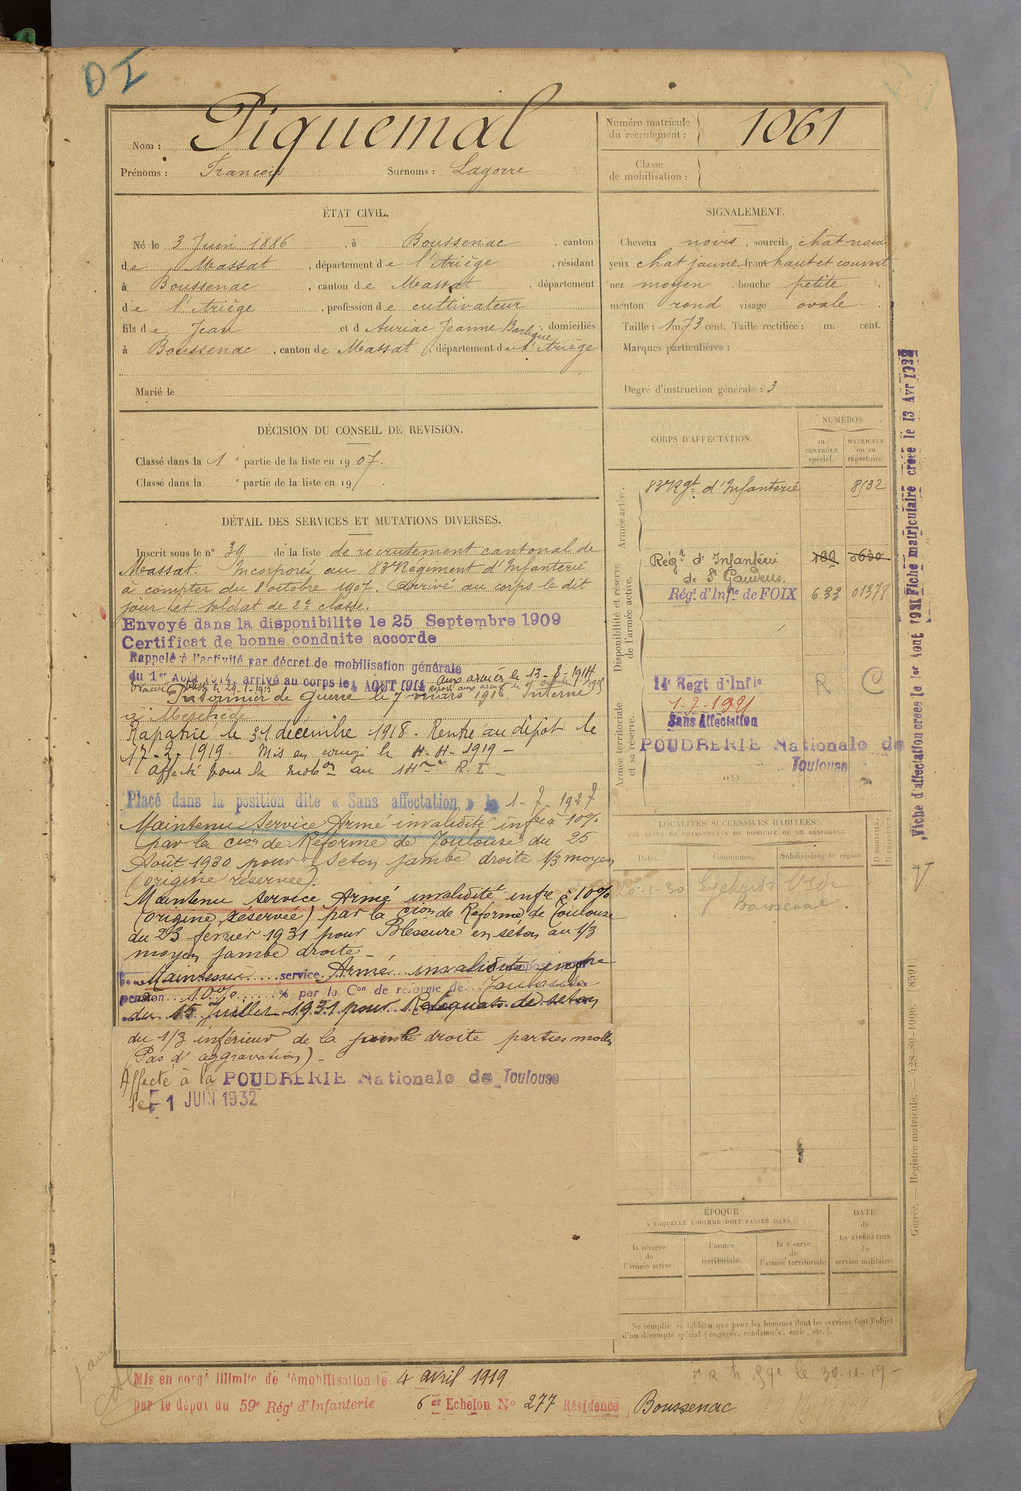 DI
Nom : Piquemal
Prénoms : François Surnoms : Lagorre
Numéro matricule du recrutement : 1061
Classe de mobilisation :
ÉTAT CIVIL.
Né le 3 Juin 1886, à Boussenac, canton
de Massat, département de l'Ariège, résidant
à Boussenac, canton de Massat, département
de l'Ariège, profession de cultivateur
fils de Jean et d Auriac Jeanne domiciliés
à Boussenac, canton de Massat, département de l'Ariège
Marié le
SIGNALEMENT.
Cheveux noirs, sourcils chat noirs
yeux chat jaune front haut et couvert
nez moyen, bouche petite
menton rond visage ovale
Taille : 1m.73 cent. Taille rectifiée : m. cent.
Marques particulières :
Degré d'instruction générale : 3
DÉCISION DU CONSEIL DE REVISION.
Classé dans la 1e partie de la liste en 1907.
Classé dans la e partie de la liste en 19
DÉTAIL DES SERVICES ET MUTATIONS DIVERSES.
Inscrit sous le n° 39 de la liste de recrutement cantonal de
Massat. Incorporé au 83e Régiment d'Infanterie
à compter du 8 octobre 1907. Arrivé au corps le dit
jour et soldat de 2e classe.
Envoyé dans la disponibilite le 25 Septembre 1909
Certificat de bonne conduite accorde
Rappelé à l'activité par décret de mobilisation générale
du 1er Août 1914, arrivé au corps le 4 AOUT 1914 aux armées le 13-8-1914
Prisonnier de Guerre le 7 mars 1916 Interné
à Meschede
Rapatrié le 31 décembre 1918. Rentré au dépôt le
17-2-1919. Mis en congé le 4-4-1919 -
affecté pour la mobon au 14me R.I.
Placé dans la position dite « Sans affectation » le 1-7-1927
Maintenu Service Armé invalidité infre à 10%
par la Cion de Réforme de Toulouse du 25
Août 1930 pour Seton jambe droite 1/3 moyen
(origine réservée).
Maintenu service Armé invalidité infre à 10%
(origine réservée) par la Cion de Réforme de Toulouse
du 23 février 1931 pour Blessure en seton au 1/3
moyen jambe droite -
Maintenu service Armé invalidité infre
pension 10% % par la Con de réforme de Toulouse
du 15 Juillet 1931 pour Reliquats de seton
du 1/3 inférieur de la jambe droite parties molles
(Pas d'aggravation) -
Affecté à la POUDRERIE Nationale de Toulouse
le 1 JUIN 1932
CORPS D'AFFECTATION.
NUMÉROS
AU CONTRÔLE spécial.
MATRICULE OU AU répertoire.
Armée active.
83e Rgt d'Infanterie 8532
Disponibilité et réserve de l'armée active.
Régt d'Infanterie de St Gaudens.
Régt d'Infie de FOIX 633 01378
Armée territoriale et sa réserve.
14e Regt d'Infie R C
1-7-1921
Sans Affectation
POUDRERIE Nationale de
Toulouse
LOCALITÉS SUCCESSIVES HABITÉES
PAR SUITE DE CHANGEMENTS DE DOMICILE OU DE RÉSIDENCE
Dates. Communes. Subdivisions de région.
ÉPOQUE
À LAQUELLE L'HOMME DOIT PASSER DANS :
la réserve de l'armée active
l'armée territoriale.
la réserve de l'armée territoriale
DATE de LA LIBÉRATION du service militaire.
Ne remplir ce tableau que pour les hommes dont les services font l'objet
d'un décompte spécial (engagés, condamnés, omis, etc.).
Fiche d'affectation créée le 1er Aout 1921 Fiche matriculaire créée le 13 Avr 1928
Guerre. — Registre matricule.
Mis en congé illimité de démobilisation le 4 avril 1919
par le dépôt du 59e Régt d'Infanterie 6er Echelon No 277 Résidence Boussenac